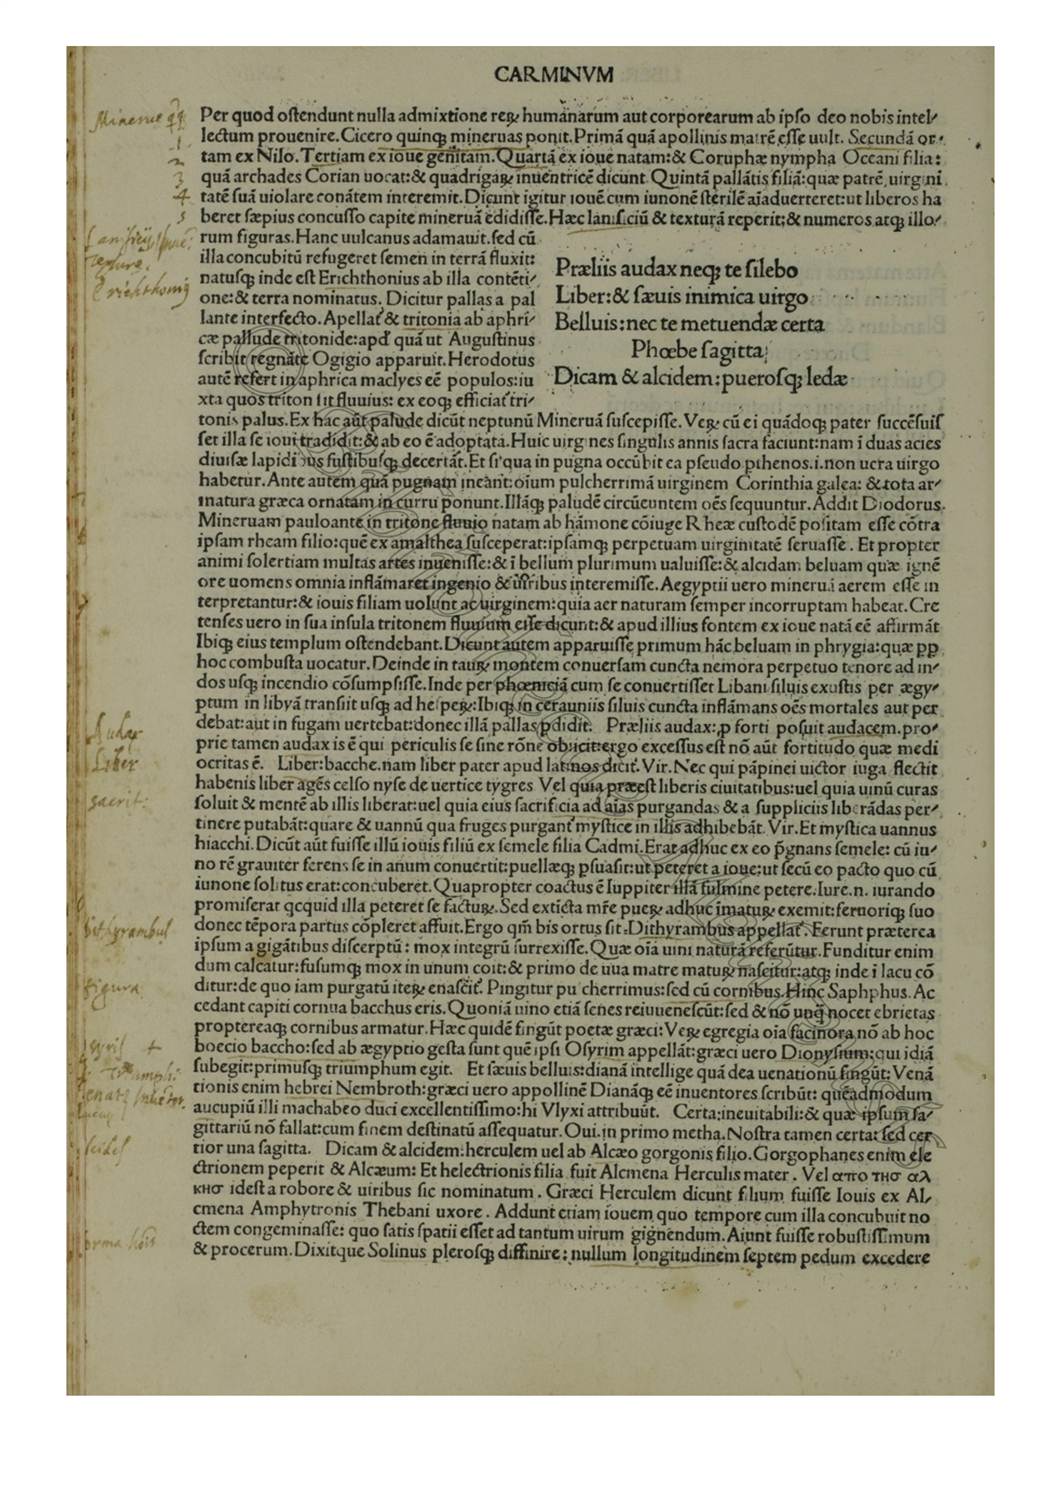 CARMINVM
Per quod ostendunt nulla admixtione reꝝ humanarum aut corporearum ab ipso deo nobis intel/
lectum prouenire. Cicero quinqꝫ mineruas ponit. Primā quā apollinis matrē esse uult. Secundā or/
tam ex Nilo. Tertiam ex ioue genitam. Quartā ex ioue natam: & Coruphæ nympha Oceani filia:
quā archades Corian uocat: & quadrigaꝝ inuentricē dicunt. Quintā pallātis filiā: quæ patrē uirgini
tatē suā uiolare conātem interemit. Dicunt igitur iouē cum iunonē sterilē aīaduerteret: ut liberos ha
beret sæpius concusso capite mineruā edidisse. Hæc lanificiū & texturā reperit: & numeros atqꝫ illo/
rum figuras. Hanc uulcanus adamauit. sed cū
illa concubitū refugeret semen in terrā fluxit:
natusqꝫ inde est Erichthonius ab illa contēti/
one: & terra nominatus. Dicitur pallas a pal
lante interfecto. Apellat̄ & tritonia ab aphri/
cæ pallude tritonide: apd̄ quā ut Augustinus
scribit regnāte Ogigio apparuit. Herodotus
autē refert in aphrica maclyes eē populos: iu
xta quos triton sit fluuius: ex eoqꝫ efficiat̄ tri/
Præliis audax neqꝫ te silebo
Liber: & sæuis inimica uirgo
Belluis: nec te metuendæ certa
Phœbe sagitta;
Dicam & alcidem: puerosqꝫ ledæ
tonis palus. Ex hac aūt palude dicūt neptunū Mineruā suscepisse. Veꝝ cū ei quādoqꝫ pater succēsuis
set illa se ioui tradidit: & ab eo ē adoptata. Huic uirgines singulis annis sacra faciunt: nam ī duas acies
diuisæ lapidibus fustibusqꝫ decertāt. Et si qua in pugna occūbit ea pseudo pthenos .i. non uera uirgo
habetur. Ante autem quā pugnam ineāt: oīum pulcherrimā uirginem Corinthia galea: & tota ar/
matura græca ornatam in curru ponunt. Illāqꝫ paludē circūeuntem oēs sequuntur. Addit Diodorus.
Mineruam pauloante in tritone fluuio natam ab hāmone cōiuge Rheæ custodē positam esse cōtra
ipsam rheam filio: quē ex amalthea susceperat: ipsamqꝫ perpetuam uirginitatē seruasse. Et propter
animi solertiam multas artes inuenisse: & ī bellum plurimum ualuisse: & alcidam beluam quæ ignē
ore uomens omnia inflāmaret ingenio & uiribus interemisse. Aegyptii uero mineruā aerem esse in
terpretantur: & iouis filiam uolunt ac uirginem: quia aer naturam semper incorruptam habeat. Cre
tenses uero in sua insula tritonem fluuium esse dicunt: & apud illius fontem ex ioue natā eē affirmāt
Ibiqꝫ eius templum ostendebant. Dicunt autem apparuisse primum hāc beluam in phrygia: quæ pp
hoc combusta uocatur. Deinde in tauꝝ montem conuersam cuncta nemora perpetuo tenore ad in/
dos usqꝫ incendio cōsumpsisse. Inde per phœniciā cum se conuertisset Libani siluis exustis per ægy/
ptum in libyā transiit usqꝫ ad hespeꝝ: Ibiqꝫ in cerauniis siluis cuncta inflāmans oēs mortales aut per
debat: aut in fugam uertebat: donec illā pallas ꝑdidit. Præliis audax: ꝓ forti posuit audacem. pro/
prie tamen audax is ē qui periculis se sine rōne obiicit: ergo excessus est nō aūt fortitudo quæ medi
ocritas ē. Liber: bacche. nam liber pater apud latinos dicit̄. Vir. Nec qui pāpinei uictor iuga flectit
habenis liber agēs celso nyse de uertice tygres Vel quia præest liberis ciuitatibus: uel quia uinū curas
soluit & mentē ab illis liberat: uel quia eius sacrificia ad aīas purgandas & a suppliciis liberādas per/
tinere putabāt: quare & uannū qua fruges purgant̄ mystice in illis adhibebāt. Vir. Et mystica uannus
hiacchi. Dicūt aūt fuisse illū iouis filiū ex semele filia Cadmi. Erat adhuc ex eo p̄gnans semele: cū iu/
no rē grauiter ferens se in anum conuertit: puellæqꝫ ꝑsuasit: ut peteret a ioue: ut secū eo pacto quo cū
iunone solitus erat: concuberet. Quapropter coactus ē Iuppiter illā fulmine petere. Iure .n. iurando
promiserat qcquid illa peteret se factuꝝ. Sed extīcta mr̄e pueꝝ adhuc īmatuꝝ exemit: femoriqꝫ suo
donec tēpora partus cōpleret affuit. Ergo qm̄ bis ortus sit: Dithyrambus appellat̄. Ferunt præterea
ipsum a gigātibus discerptū: mox integrū surrexisse. Quæ oīa uini naturā referūtur. Funditur enim
dum calcatur: fusumqꝫ mox in unum coit: & primo de uua matre matuꝝ nascitur: atqꝫ inde ī lacu cō
ditur: de quo iam purgatū iteꝝ enascit̄. Pingitur pulcherrimus: sed cū cornibus. Hinc Saphphus. Ac
cedant capiti cornua bacchus eris. Quoniā uino etiā senes reiuuenescūt: sed & nō unq̄ nocet ebrietas
proptereaqꝫ cornibus armatur. Hæc quidē fingūt poetæ græci: Veꝝ egregia oīa facinora nō ab hoc
boecio baccho: sed ab ægyptio gesta sunt quē ipsi Osyrim appellāt: græci uero Dionysium: qui idiā
subegit: primusqꝫ triumphum egit. Et sæuis belluis: dianā intellige quā dea uenationū fingūt: Venā
tionis enim hebrei Nembroth: græci uero appollinē Dianāqꝫ eē inuentores scribūt: quēadmodum
aucupiū illi machabeo duci excellentissimo: hi Vlyxi attribuūt. Certa: ineuitabili: & quæ ipsum sa/
gittariū nō fallat: cum finem destinatū assequatur. Oui. in primo metha. Nostra tamen certa: sed cer
tior una sagitta. Dicam & alcidem: herculem uel ab Alcæo gorgonis filio. Gorgophanes enim ele
ctrionem peperit & Alcæum: Et helectrionis filia fuit Alcmena Herculis mater. Vel απο τησ αλ
κησ idest a robore & uiribus sic nominatum. Græci Herculem dicunt filium fuisse Iouis ex Al/
cmena Amphytronis Thebani uxore. Addunt etiam iouem quo tempore cum illa concubuit no
ctem congeminasse: quo satis spatii esset ad tantum uirum gignendum. Aiunt fuisse robustissimum
& procerum. Dixitque Solinus plerosqꝫ diffinire: nullum longitudinem septem pedum excedere
1
2
3
4
5
Erichthoniꝰ
Audax
Liber
Dithyrambus
figura